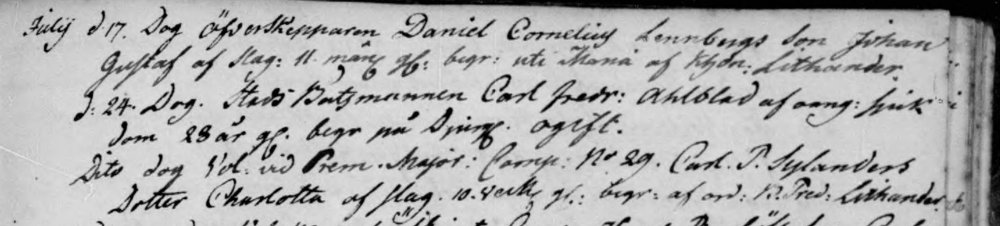 Julij d. 17. Dog Öfverskepparen Daniel Cornelius Lennbergs Son Johan
Gustaf af slag: 11. mån: gl: begr: uti Maria af Lithander.
d: 24. Dog. Stads Båtzmannen Carl Fredr: Ahlblad af oang: sjuk
dom 28 år gl. begr på Djurg. ogift.
Dito dog Vol. vid Prem. Major: Comp: No 29. Carl. P. Sylanders
Dotter Charlotta af slag. 10. veck gl: begr: af ord: Pred: Lithander.